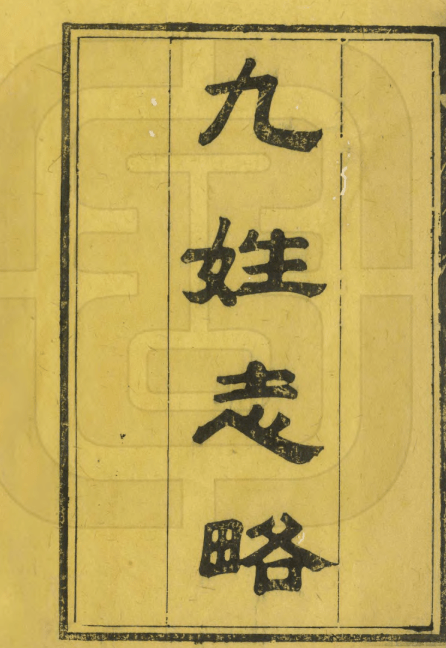 九姓志略